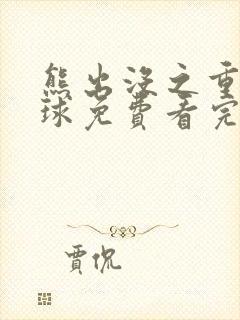 熊出没之重
球免費看完
賈侃